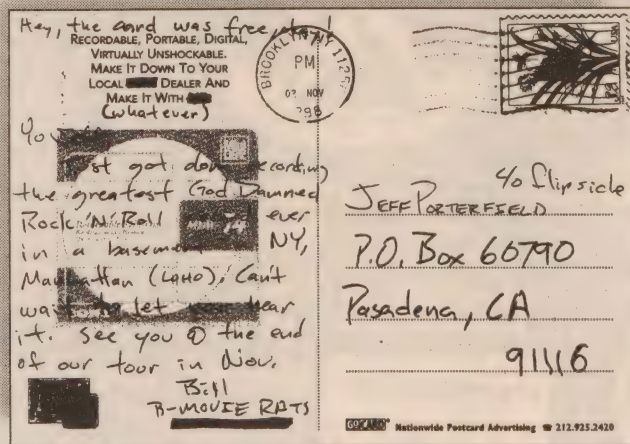 Hey, the card was free, too!
RECORDABLE, PORTABLE, DIGITAL,
VIRTUALLY UNSHOCKABLE.
MAKE IT DOWN TO YOUR
LOCAL DEALER AND
MAKE IT WITH
(whatever)
Yo
Just got done recording
the greatest God Damned
Rock 'N' Roll ever
in a basement NY,
Manhattan (LOHO). Can't
wait to let you hear
it. See you @ the end
of our tour in Nov.
Bill
B-MOVIE RATS
BROOKLYN NY 112
PM
03 NOV
1998
USA
JEFF PORTERFIELD c/o flipside
P.O. Box 60790
Pasadena, CA
91116
GOCARD Nationwide Postcard Advertising ☎ 212.925.2420